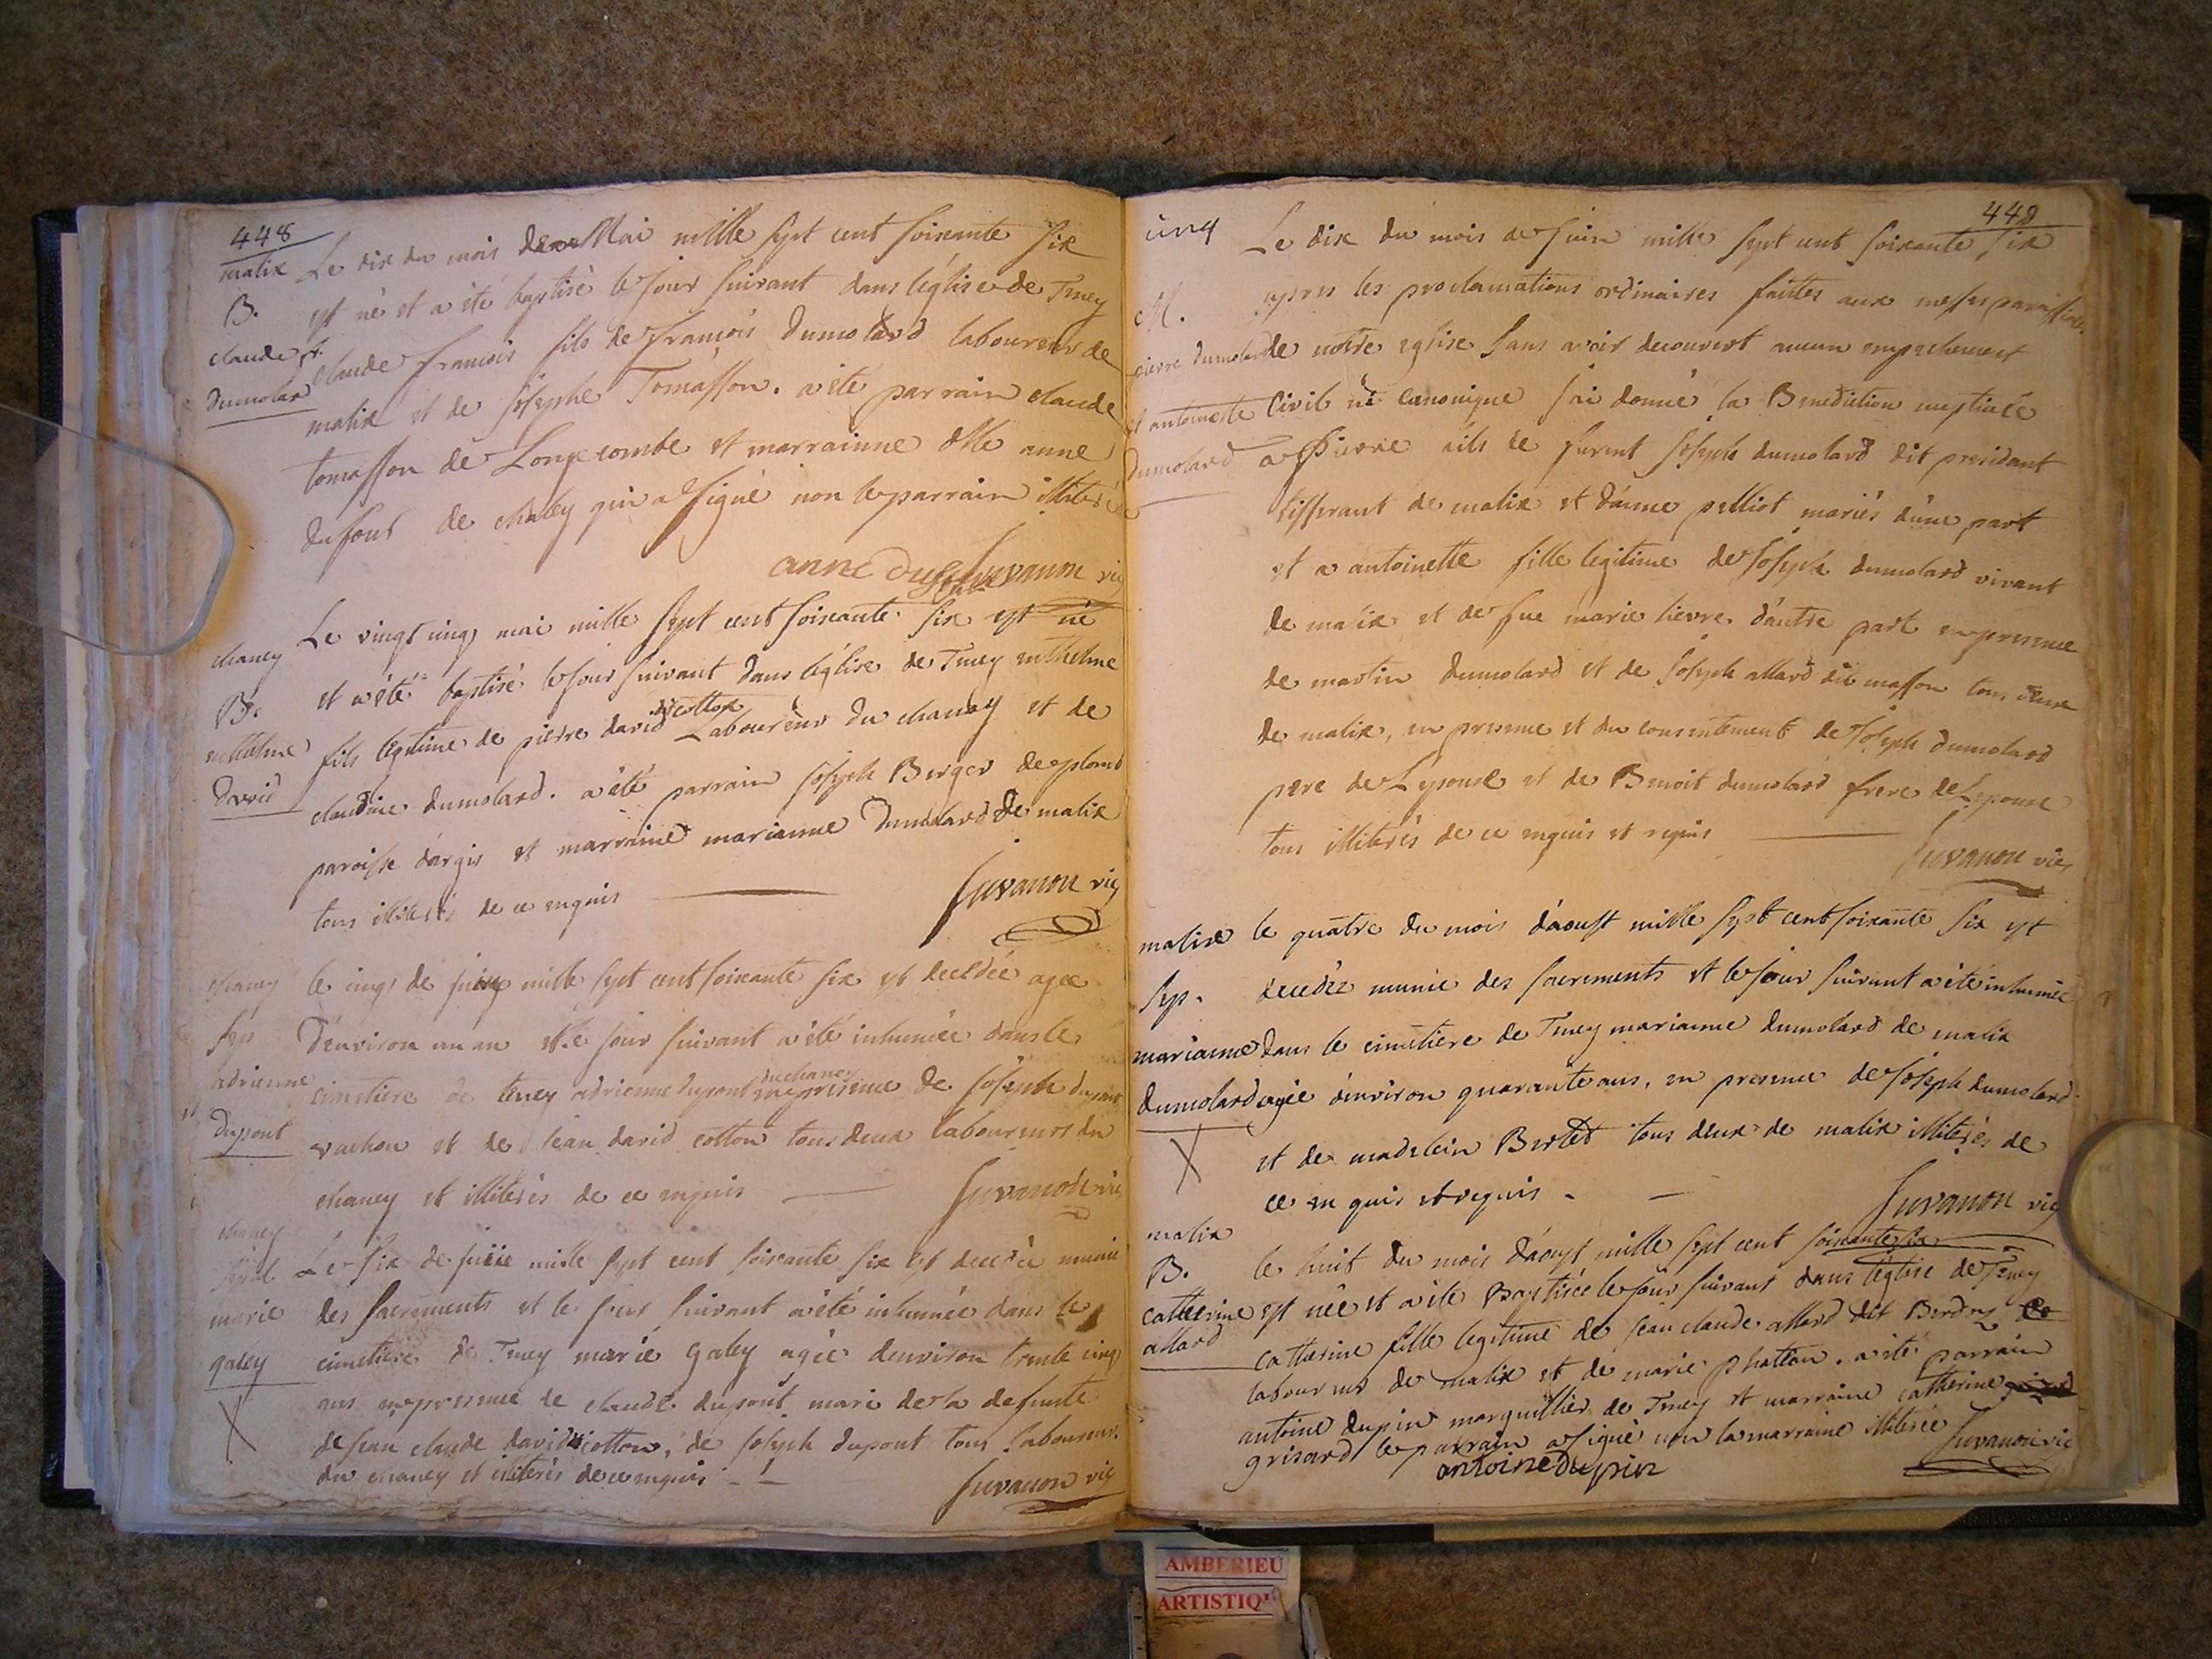 448
malix Le dix du mois de Mai mille sept cent soixante six
B. est né et a été baptisé le jour suivant dans l'église de Tney
claude fr. claude francois fils de françois Dumolard laboureur de
Dumolar malix et de josephe Tomasson. a été parrain claude
tomasson de Longecombe et marrainne dlle anne
dufour de chaley qui a signé non le parrain illiteré
anne dufour Juvanon vic
chaney Le vingt cinq mai mille sept cent soixante six est né
B. et a été baptisé le jour suivant dans l'église de Tney enthelme
enthelme fils legitime de pierre david dit cotton Laboureur du chaney et de
David claudine dumolard. a été parrain joseph Berger de plomb
paroisse d'argis et marraine marianne Dumolard de malix
tous illiterés de ce enquis Juvanon vic
chaney le cinq de juin mille sept cent soixante six est decedée agée
sep d'environ un an et le jour suivant a été inhumée dans le
adrienne cimetiere de teney adrienne dupont du chaney en presence de joseph dupont
Dupont vachon et de jean david cotton tous deux laboureurs du
chaney et illiterés de ce enquis Juvanon vic
chaney
Le six de juin mille sept cent soixante six est decedée munie
marie des sacrements et le jour suivant a été inhumée dans le
galey cimetiere de Tney marie galey agée d'environ trente cinq
X ans en presence de claude dupont mari de la defunte
de jean claude david cotton, de joseph dupont tous laboureurs
du chaney et illiterés de ce enquis Juvanon vic
449
Le dix du mois de juin mille sept cent soixante six
M. apres les proclamations ordinaires faittes aux messes paroissiales
pierre dumolard de notre eglise sans avoir decouvert aucun empechement
et antoinette Civil ni canonique j'ai donné la Benediction nuptiale
Dumolard a Pierre fils de Joseph dumolard dit president
tisserant de malix et d'anne pelliot mariés d'une part
et a antoinette fille legitime de joseph dumolard vivant
de malix et de fue marie lievre d'autre part en presence
de martin dumolard et de joseph allard dit masson tous deux
de malix, en presence et du consentement de joseph dumolard
pere de L'epouse et de Benoit dumolard frere de L'epouse
tous illiterés de ce enquis et requis Juvanon vic
malix le quatre du mois d'aoust mille sept cent soixante six est
sep. decedée munie des sacrements et le jour suivant a été inhumée
marianne dans le cimetiere de Tney marianne dumolard de malix
dumolard agée d'environ quarante ans, en presence de joseph dumolard
X et de madelein Bertet tous deux de malix illiterés de
ce enquis et requis. Juvanon vic
malix
B. le huit du mois d'aoust mille sept cent soixante six
catherine est née et a été Baptisée le jour suivant dans l'église de Tney
allard catherine fille legitime de jean claude allard dit
laboureur de malix et de marie phatton. a été parrain
antoine dupin marguillier de Tney et marraine catherine
grisard le parrain a signé non la marraine illiterée Juvanon vic
antoine dupin
AMBERIEU
ARTISTIQU